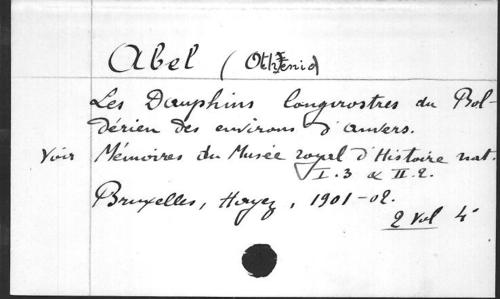 Abel (Othenio)
Les Dauphins longirostres du Bol-
dérien des environs d'anvers.
Voir Mémoires du Musée royal d'Histoire nat.
I.3 & II.2.
Bruxelles, Hayez, 1901-02.
2 Vol 4°